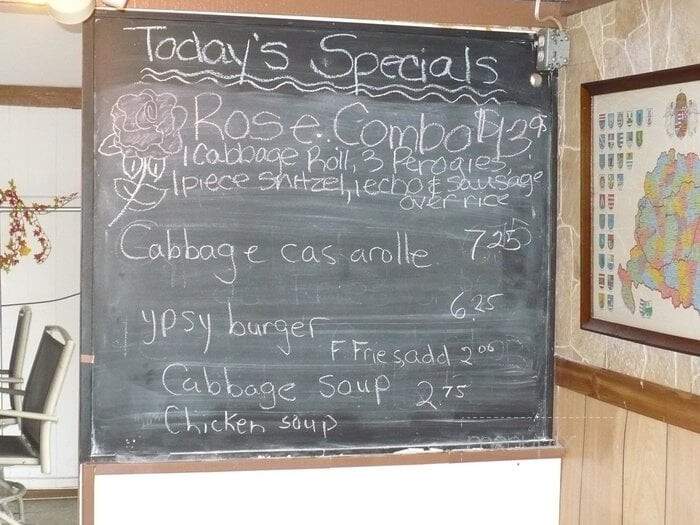 Today's Specials
Rose Combo $13.95
1 Cabbage Roll, 3 Perogies,
1 piece Snitzel, 1 echo & sausage
over rice
Cabbage casarolle 7.25
ypsy burger 6.25
F Fries, add 2.00
Cabbage soup 2.75
Chicken soup